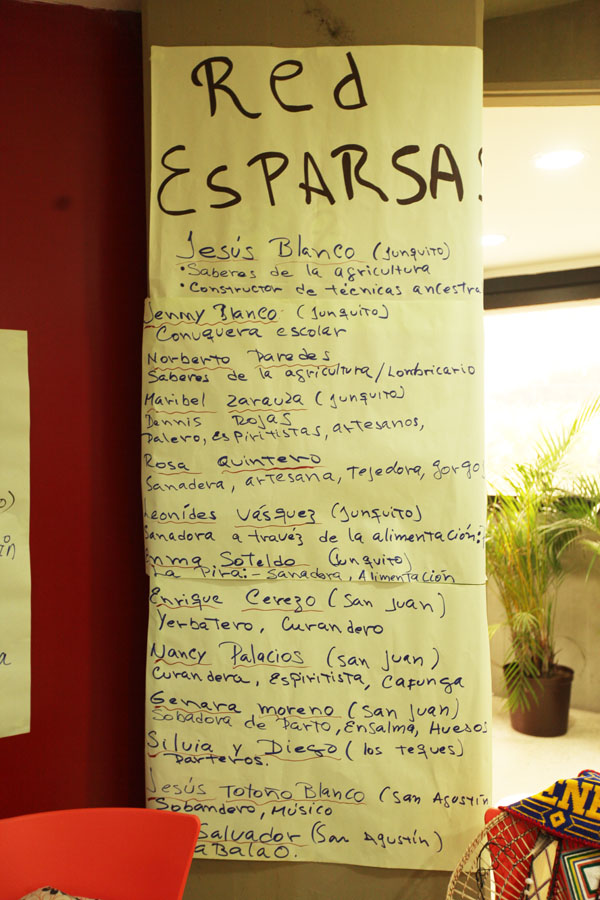 Red
ESPARSAS
Jesús Blanco (Junquito)
• Saberes de la agricultura
• Constructor de técnicas ancestra
Jenny Blanco (Junquito)
Conuquera escolar
Norberto Paredes
Saberes de la agricultura/Lombricario
Maribel Zarauza (Junquito)
Dennis Rojas
Palero, espiritistas, artesanos,
Rosa Quintero
Sanadera, artesana, Tejedora, gorgo
Leonídes Vásquez (Junquito)
Sanadora a travéz de la alimentación:
Emma Soteldo (Junquito)
La Pira:- Sanadora, Alimentación
Enrique Cerezo (San Juan)
Yerbatero, Curandero
Nancy Palacios (San Juan)
Curandera, Espiritista, Cafunga
Genara moreno (San Juan)
Sobadora de Parto, Ensalma, Huesos
Silvia y Diego (los teques)
Parteros.
Jesús Totoño Blanco (San Agustín
Sobandero, Músico
Salvador (San Agustín)
aBalao.